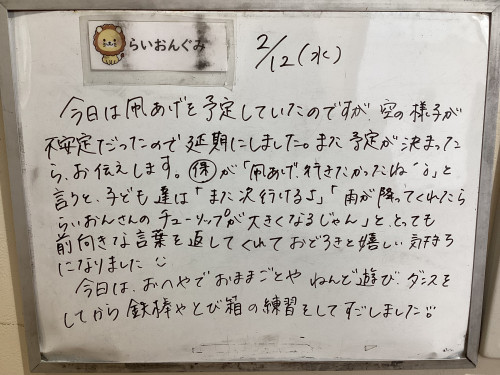 らいおんぐみ
2/12(水)
今日は凧あげを予定していたのですが、空の様子が
不安定だったので延期にしました。また予定が決まった
ら、お伝えします。㋭が「凧あげ行きたかったね…。」と
言うと、子ども達は「また次行ける♪」「雨が降ってくれたら
らいおんさんのチューリップが大きくなるじゃん」と、とっても
前向きな言葉を返してくれておどろきと嬉しい気持ち
になりました
今日は、おへやでおままごとや ねんど遊び、ダンスを
してから 鉄棒やとび箱の練習をしてすごしました